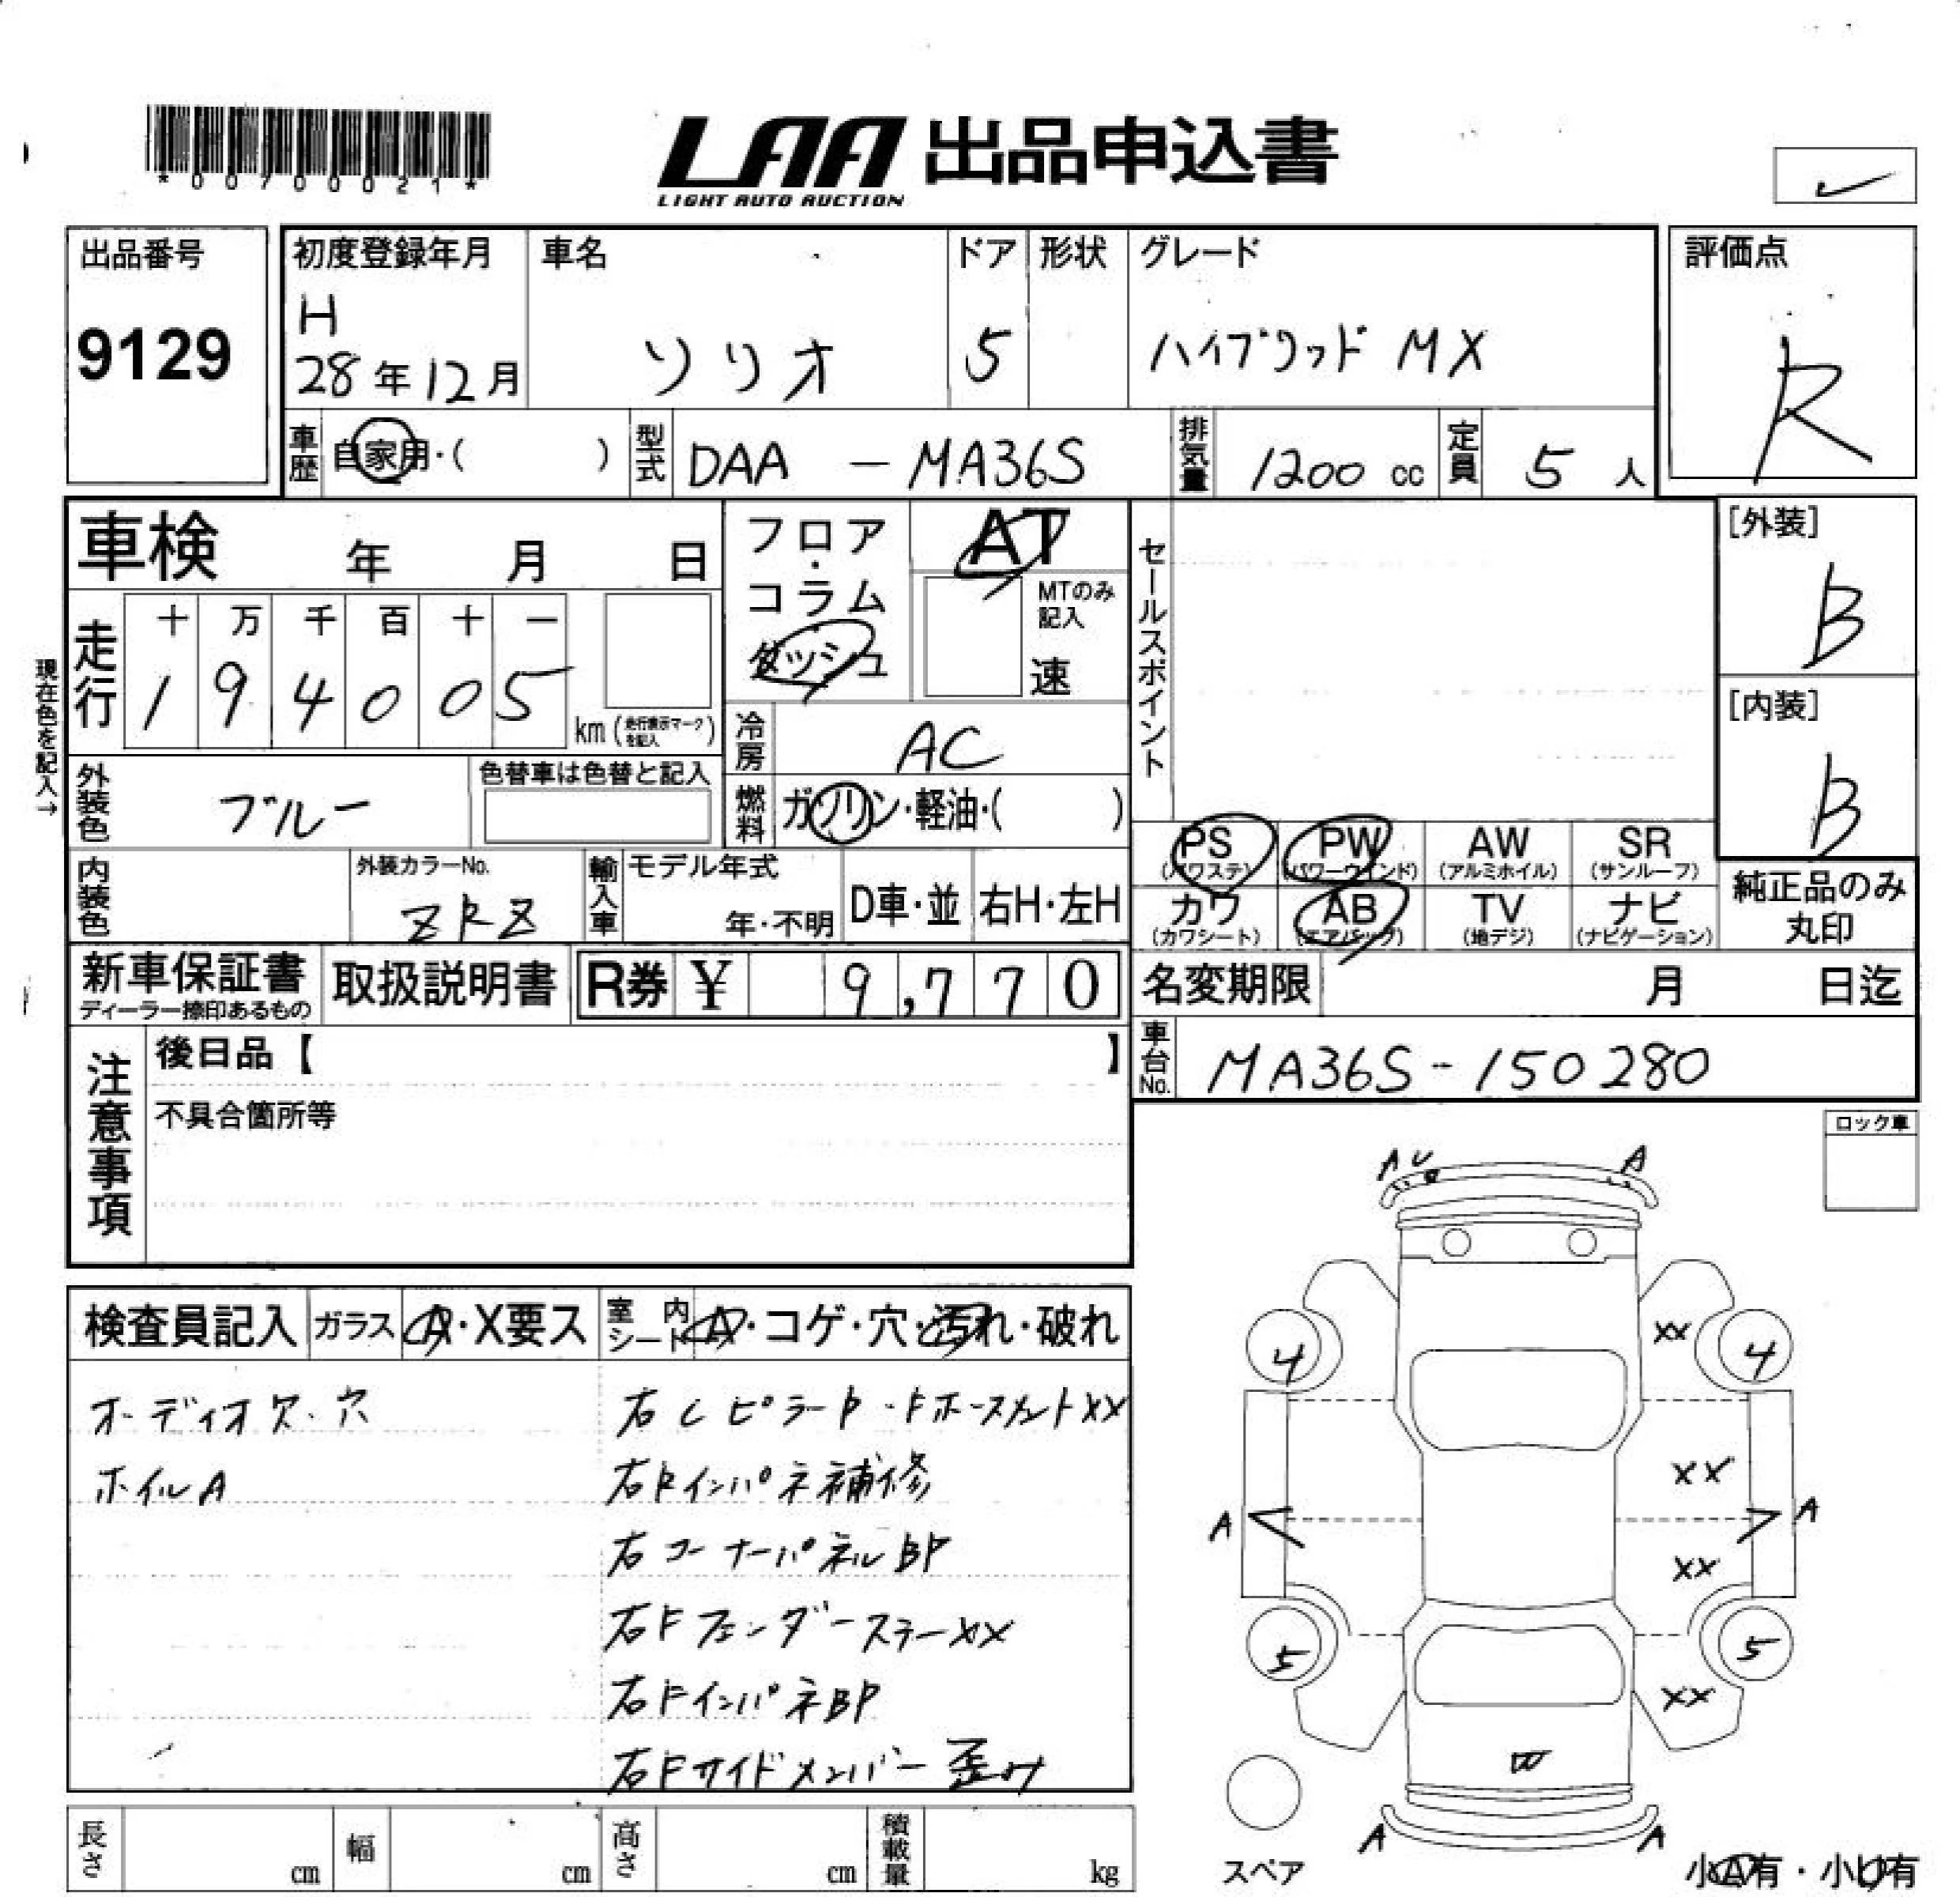 *00700021*
LAA 出品申込書
LIGHT AUTO AUCTION
出品番号
9129
初度登録年月
H
28年12月
車名
ソリオ
ドア
5
形状
グレード
ハイブリッド MX
評価点
R
車歴
自家用・( )
型式
DAA - MA36S
排気量
1200 cc
定員
5 人
車検 年 月 日
フロア・コラム
ダッシュ
AT
MTのみ記入
速
セールスポイント
[外装]
B
[内装]
B
現在色を記入→
走行
十 万 千 百 十 一
1 9 4 0 0 5
km (走行表示マークを記入)
冷房
AC
外装色
ブルー
色替車は色替と記入
燃料
ガソリン・軽油・( )
PS
(パワステ)
PW
(パワーウインド)
AW
(アルミホイル)
SR
(サンルーフ)
内装色
外装カラーNo.
ZRZ
輸入車
モデル年式
年・不明
D車・並
右H・左H
カワ
(カワシート)
AB
(エアバッグ)
TV
(地デジ)
ナビ
(ナビゲーション)
純正品のみ
丸印
新車保証書
ディーラー捺印あるもの
取扱説明書
R券 ¥ 9,770
名変期限 月 日迄
車台No.
MA36S-150280
注意事項
後日品【 】
不具合箇所等
ロック車
検査員記入
ガラス
A・X要ス
室内シート
A・コゲ・穴・汚れ・破れ
オーディオ欠・穴
ホイルA
右Cピラー
右Rインパネ補修
右コーナーパネルBP
右Fフェンダーステーxx
右FインパネBP
右Fサイドメンバー歪み
A U
A
xx
4
4
xx
A
A
xx
5
5
xx
W
A
A
スペア
小A有・小U有
長さ cm
幅 cm
高さ cm
積載量 kg